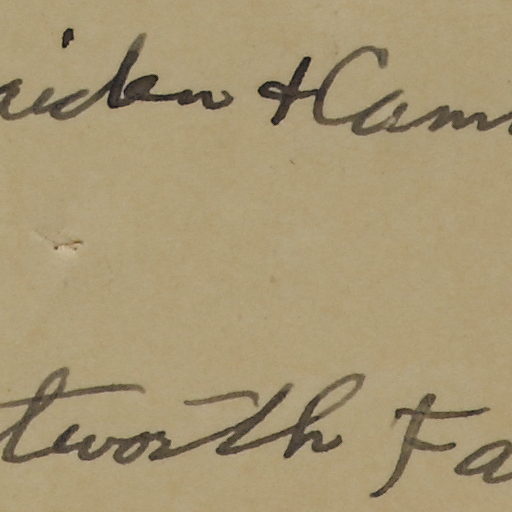 aiden & Cam
tworth Fa